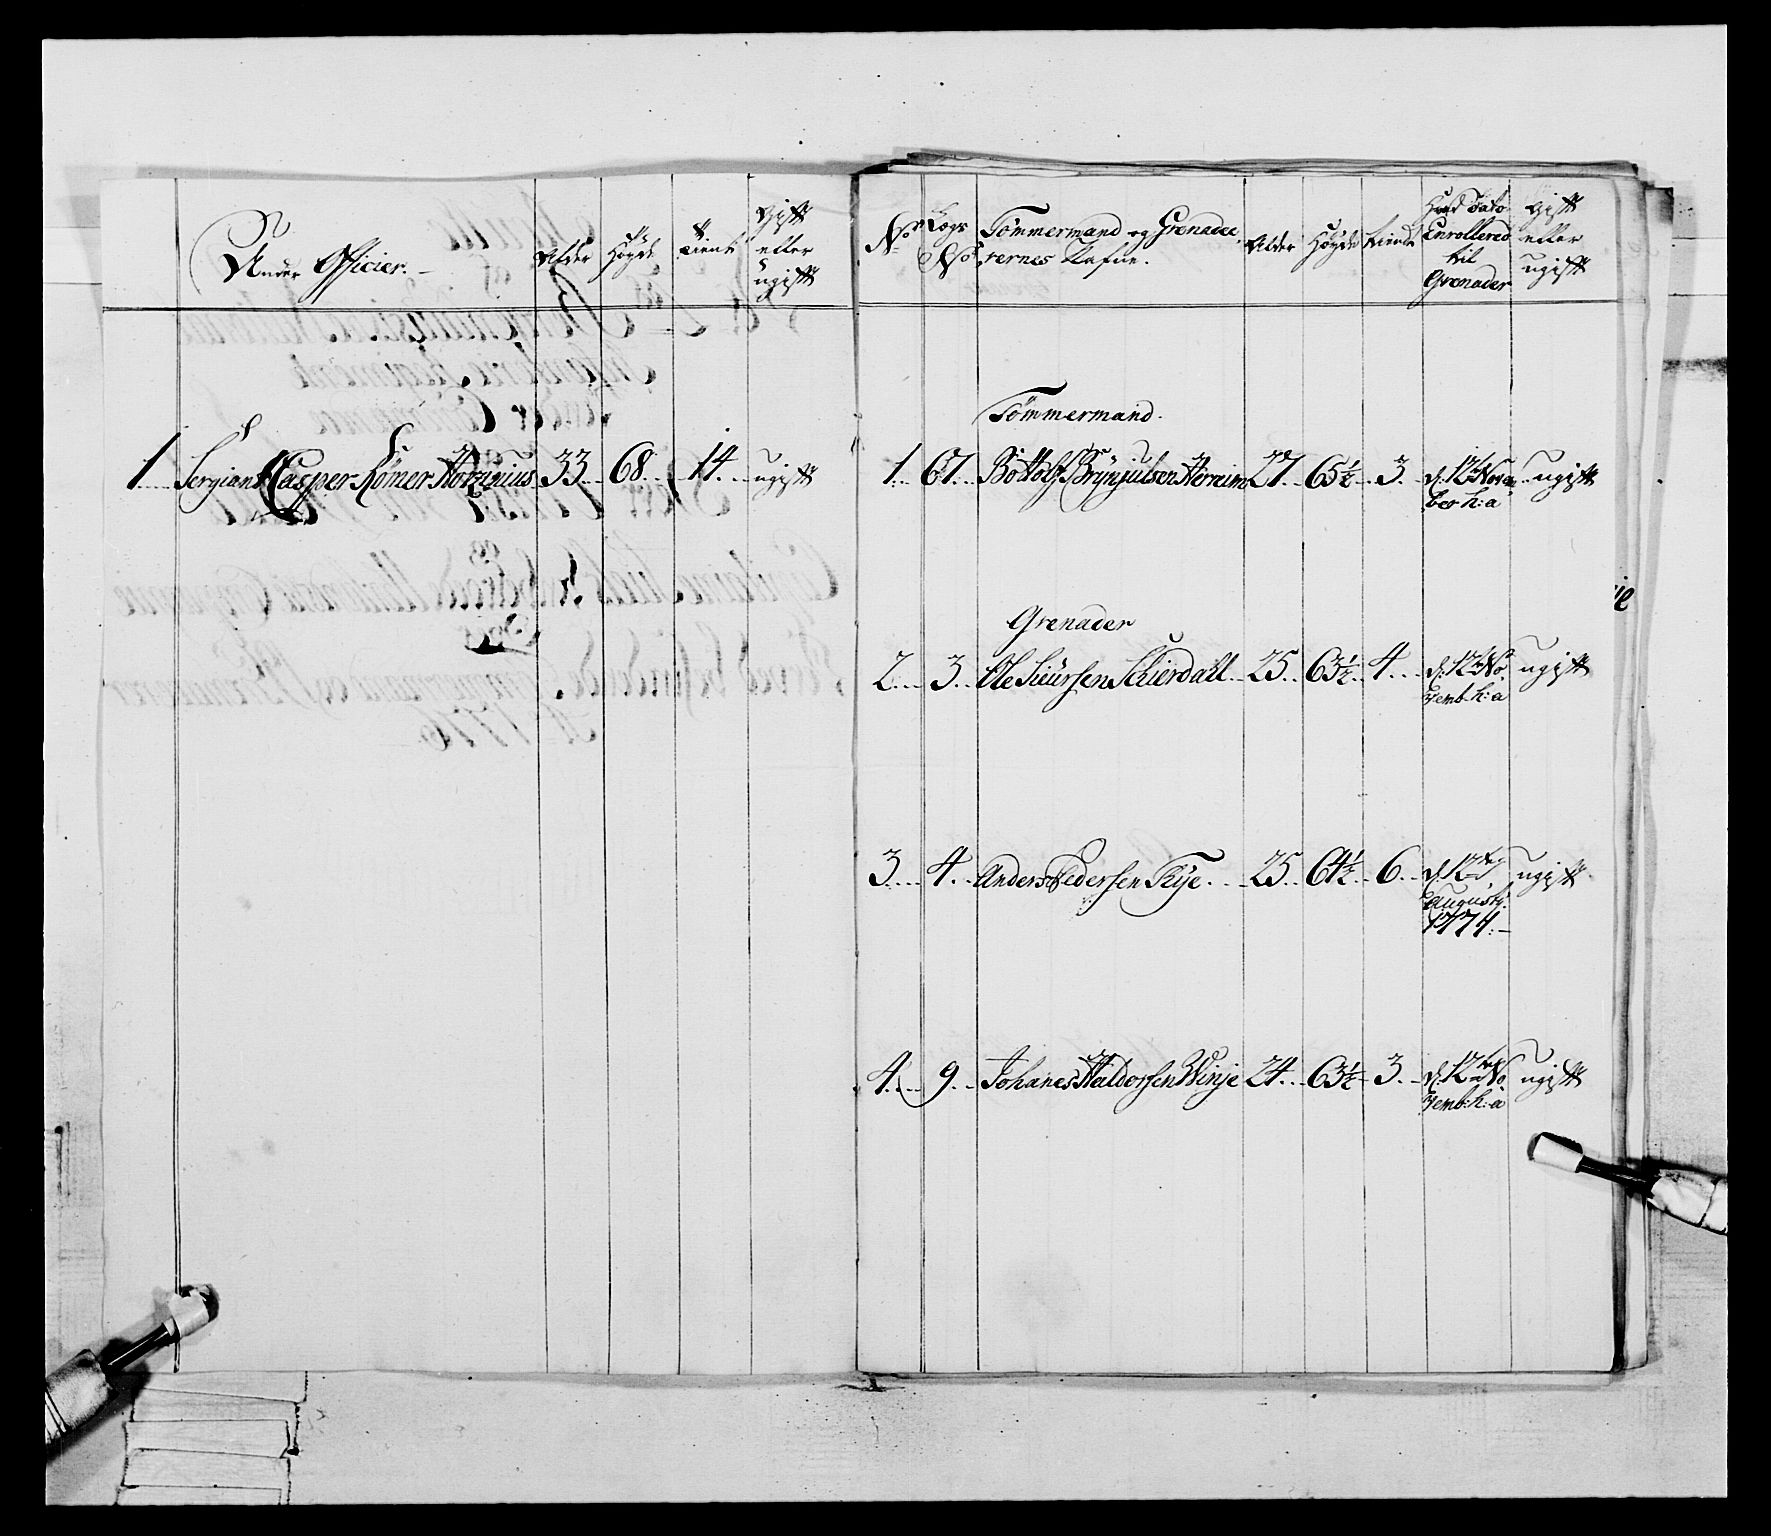 Under Officier.
Alder
Høyde
tient
Gift
eller
ugift
1 Sergiant Casper Römer Hotzinius 33 68 14 ugift
No Logs No Tømmermand og Grenadee
rernes Nafne.
Alder
Høyde
tient
Hvad Dato
Enrollered
til
Grenader
Gift
eller
ugift
Tömmermand.
1 67 Bottolf Brynjulsen Herreim 27 65½ 3 d. 12te Novem ugift
ber h: a
Grenader
2 3 Ole Siursen Schierdall 25 63½ 4 d. 12te No ugift
vemb h: a
3 4 Anders Pedersen Tije 25 64½ 6 d. 12te ugift
Augusti
1774.
4 9 Johanes Haldorsen Winje 24 63½ 3 d. 12te No ugift
vemb: h: a